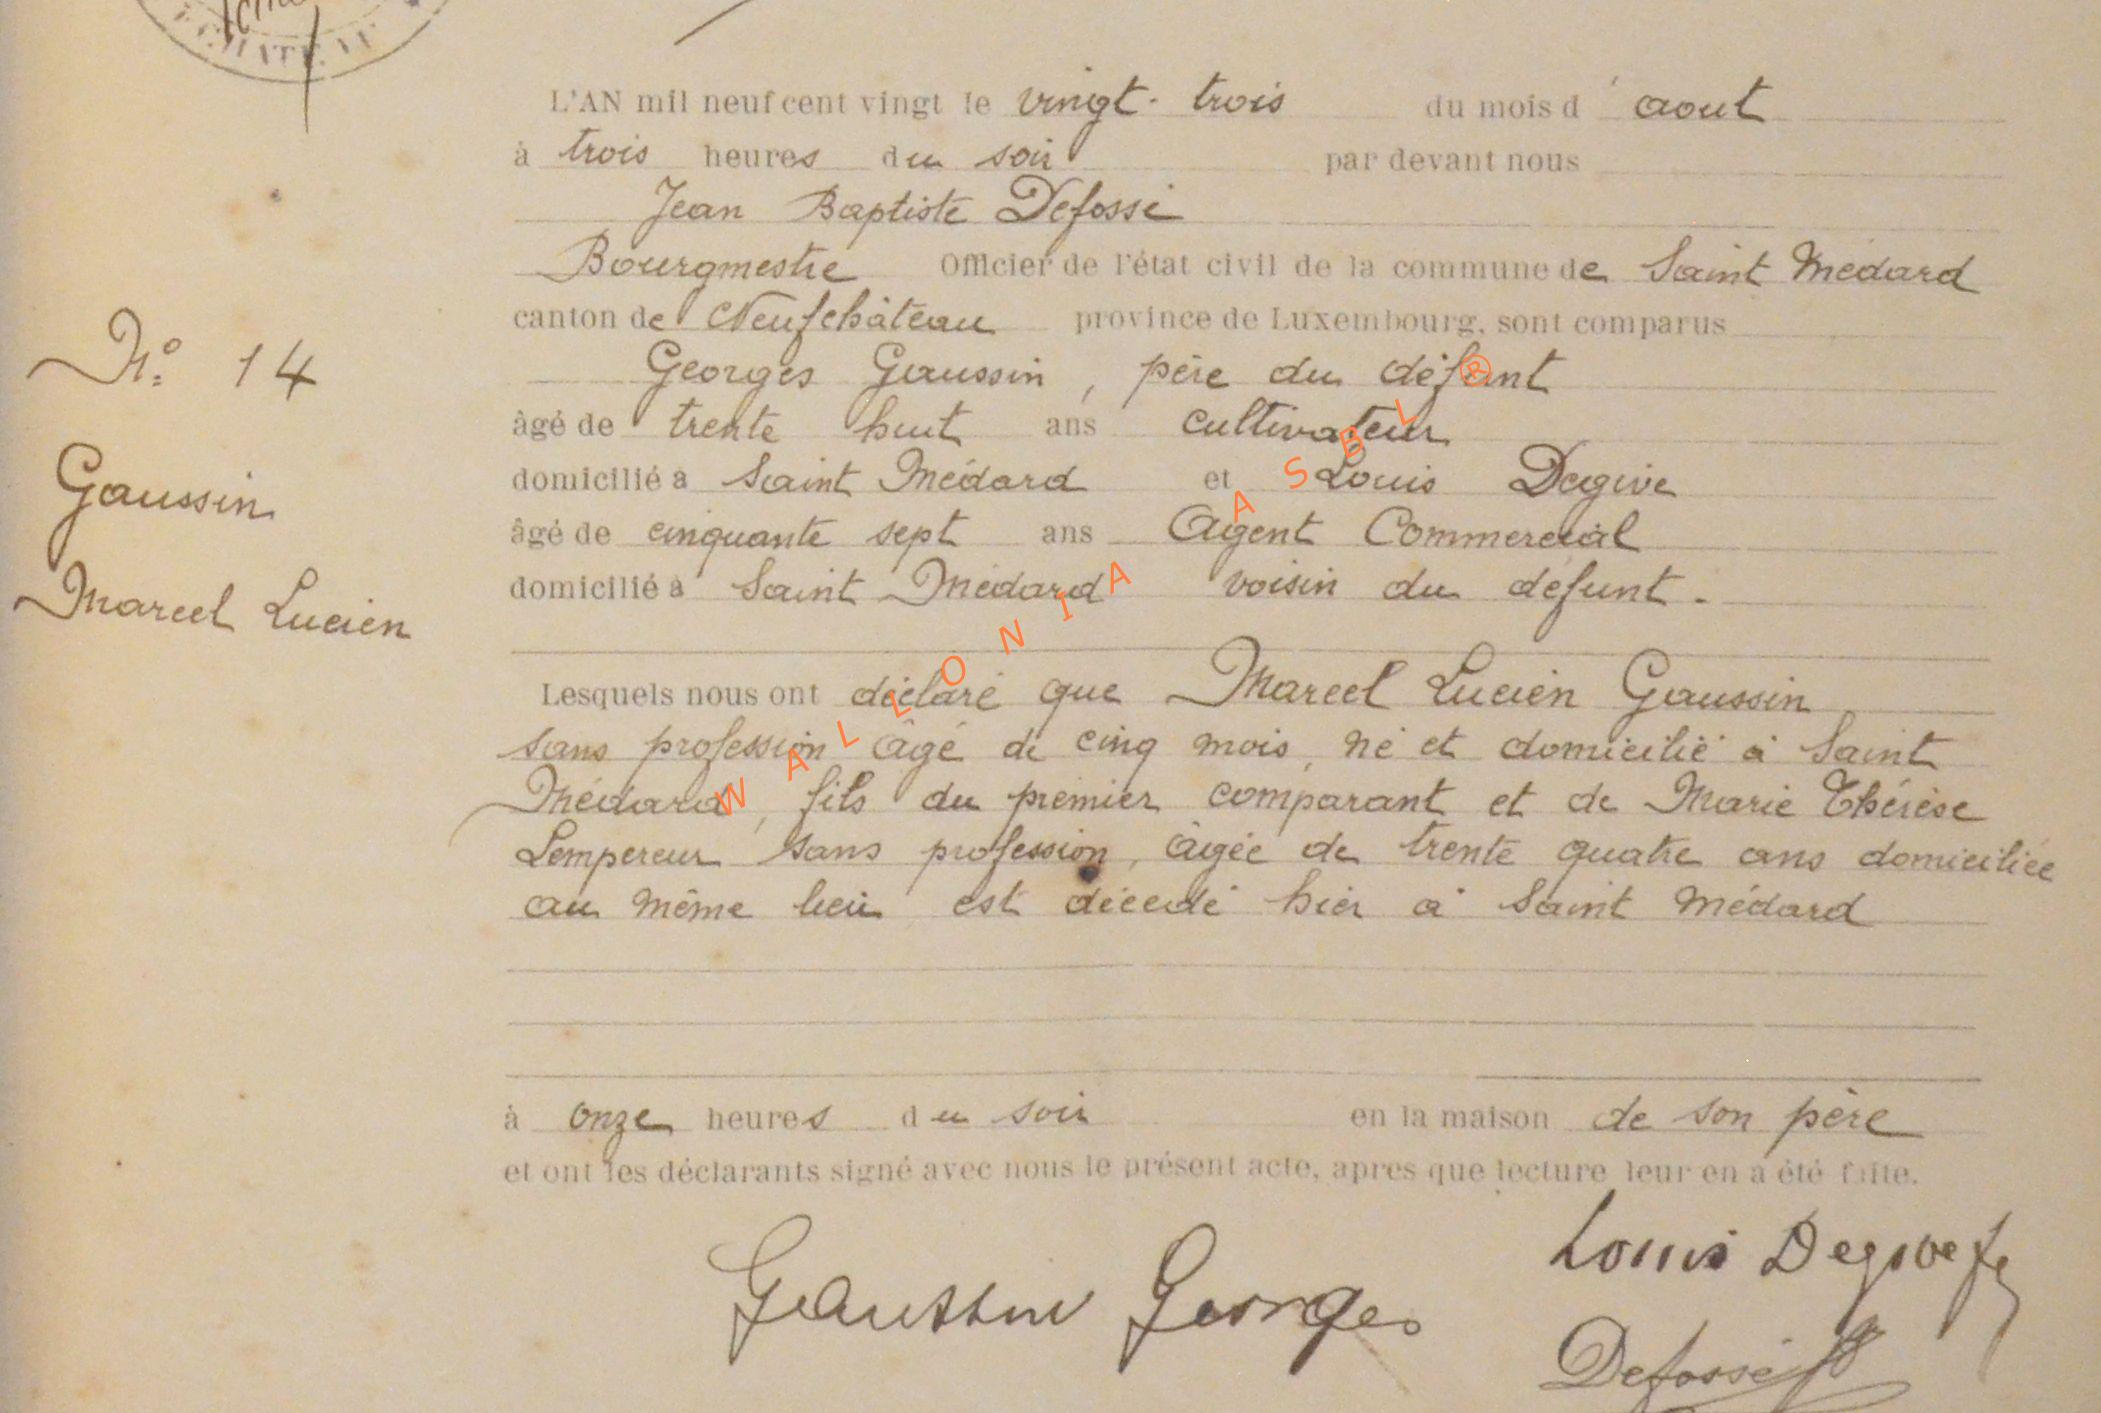 L'AN mil neuf cent vingt le vingt-trois du mois d'aout
à trois heures du soir par devant nous
Jean Baptiste Defossé
Bourgmestre Officier de l'état civil de la commune de Saint Médard
canton de Neufchâteau province de Luxembourg, sont comparus
Georges Gaussin, père du défunt
N° 14
âgé de trente huit ans cultivateur
domicilié à Saint Médard et Louis Degive
Gaussin
âgé de cinquante sept ans Agent Commercial
domicilié à Saint Médard voisin du défunt.
Marcel Lucien
Lesquels nous ont déclaré que Marcel Lucien Gaussin
sans profession âgé de cinq mois, né et domicilié à Saint
Médard, fils du premier comparant et de Marie Thérèse
Lempereur sans profession, âgée de trente quatre ans domiciliée
au même lieu est décédé hier à Saint Médard
à onze heures du soir en la maison de son père
et ont les déclarants signé avec nous le présent acte, apres que lecture leur en a été faite.
Gaussin Georges
Louis Degive
Defossé
WALLONIA ASBL ®